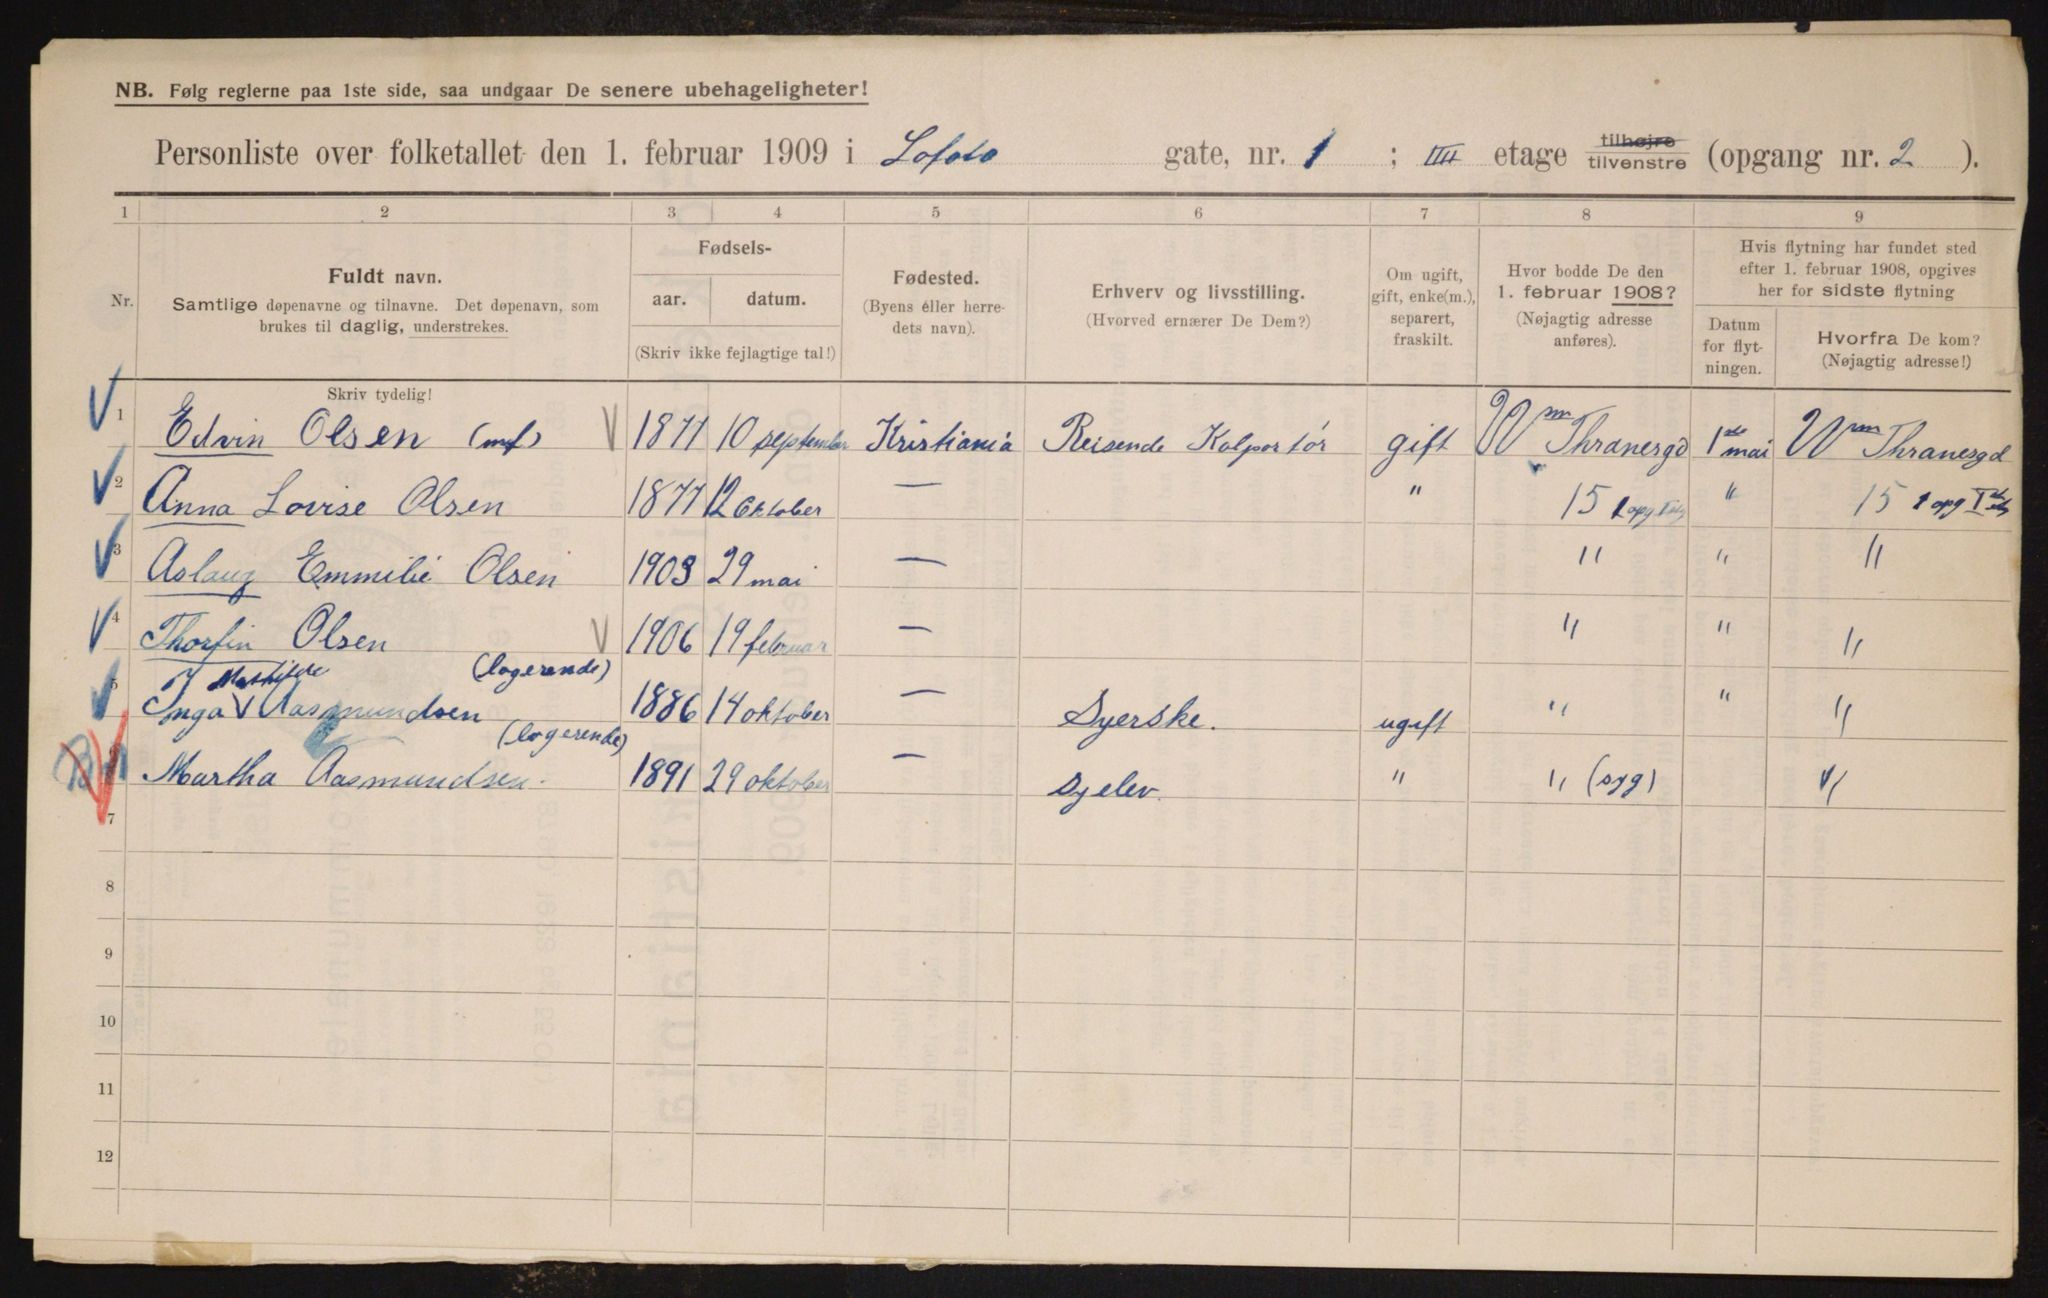 NB. Følg reglerne paa 1ste side, saa undgaar De senere ubehageligheter!
Personliste over folketallet den 1. februar 1909 i Lofoto gate, nr. 1 ; IIII etage tilhøjre tilvenstre (opgang nr. 2 ).
1 2 3 4 5 6 7 8 9
Nr.
Fuldt navn.
Samtlige døpenavne og tilnavne. Det døpenavn, som
brukes til daglig, understrekes.
Skriv tydelig!
Fødsels-
aar. datum.
(Skriv ikke fejlagtige tal!)
Fødested.
(Byens eller herre-
dets navn).
Erhverv og livsstilling.
(Hvorved ernærer De Dem?)
Om ugift,
gift, enke(m.),
separert,
fraskilt.
Hvor bodde De den
1. februar 1908?
(Nøjagtig adresse
anføres).
Hvis flytning har fundet sted
efter 1. februar 1908, opgives
her for sidste flytning
Datum
for flyt-
ningen.
Hvorfra De kom?
(Nøjagtig adresse!)
1 Edvin Olsen 1877 10 september Kristiania Reisende Kolportør gift Wm Thranesgd 1ste mai Wm Thranesgd
2 Anna Lovise Olsen 1877 12 oktober — " 15 1 opg " 15 1 opg
3 Aslaug Emmilie Olsen 1903 29 mai — " " "
4 Thorfin Olsen 1906 19 februar — " " "
Mathilde (logerende)
5 Inga V Aasmundsen 1886 14 oktober — Syerske. ugift " " "
(logerende)
6 Martha Aasmundsen. 1891 29 oktober — Syelev. " " (syg) "
7
8
9
10
11
12